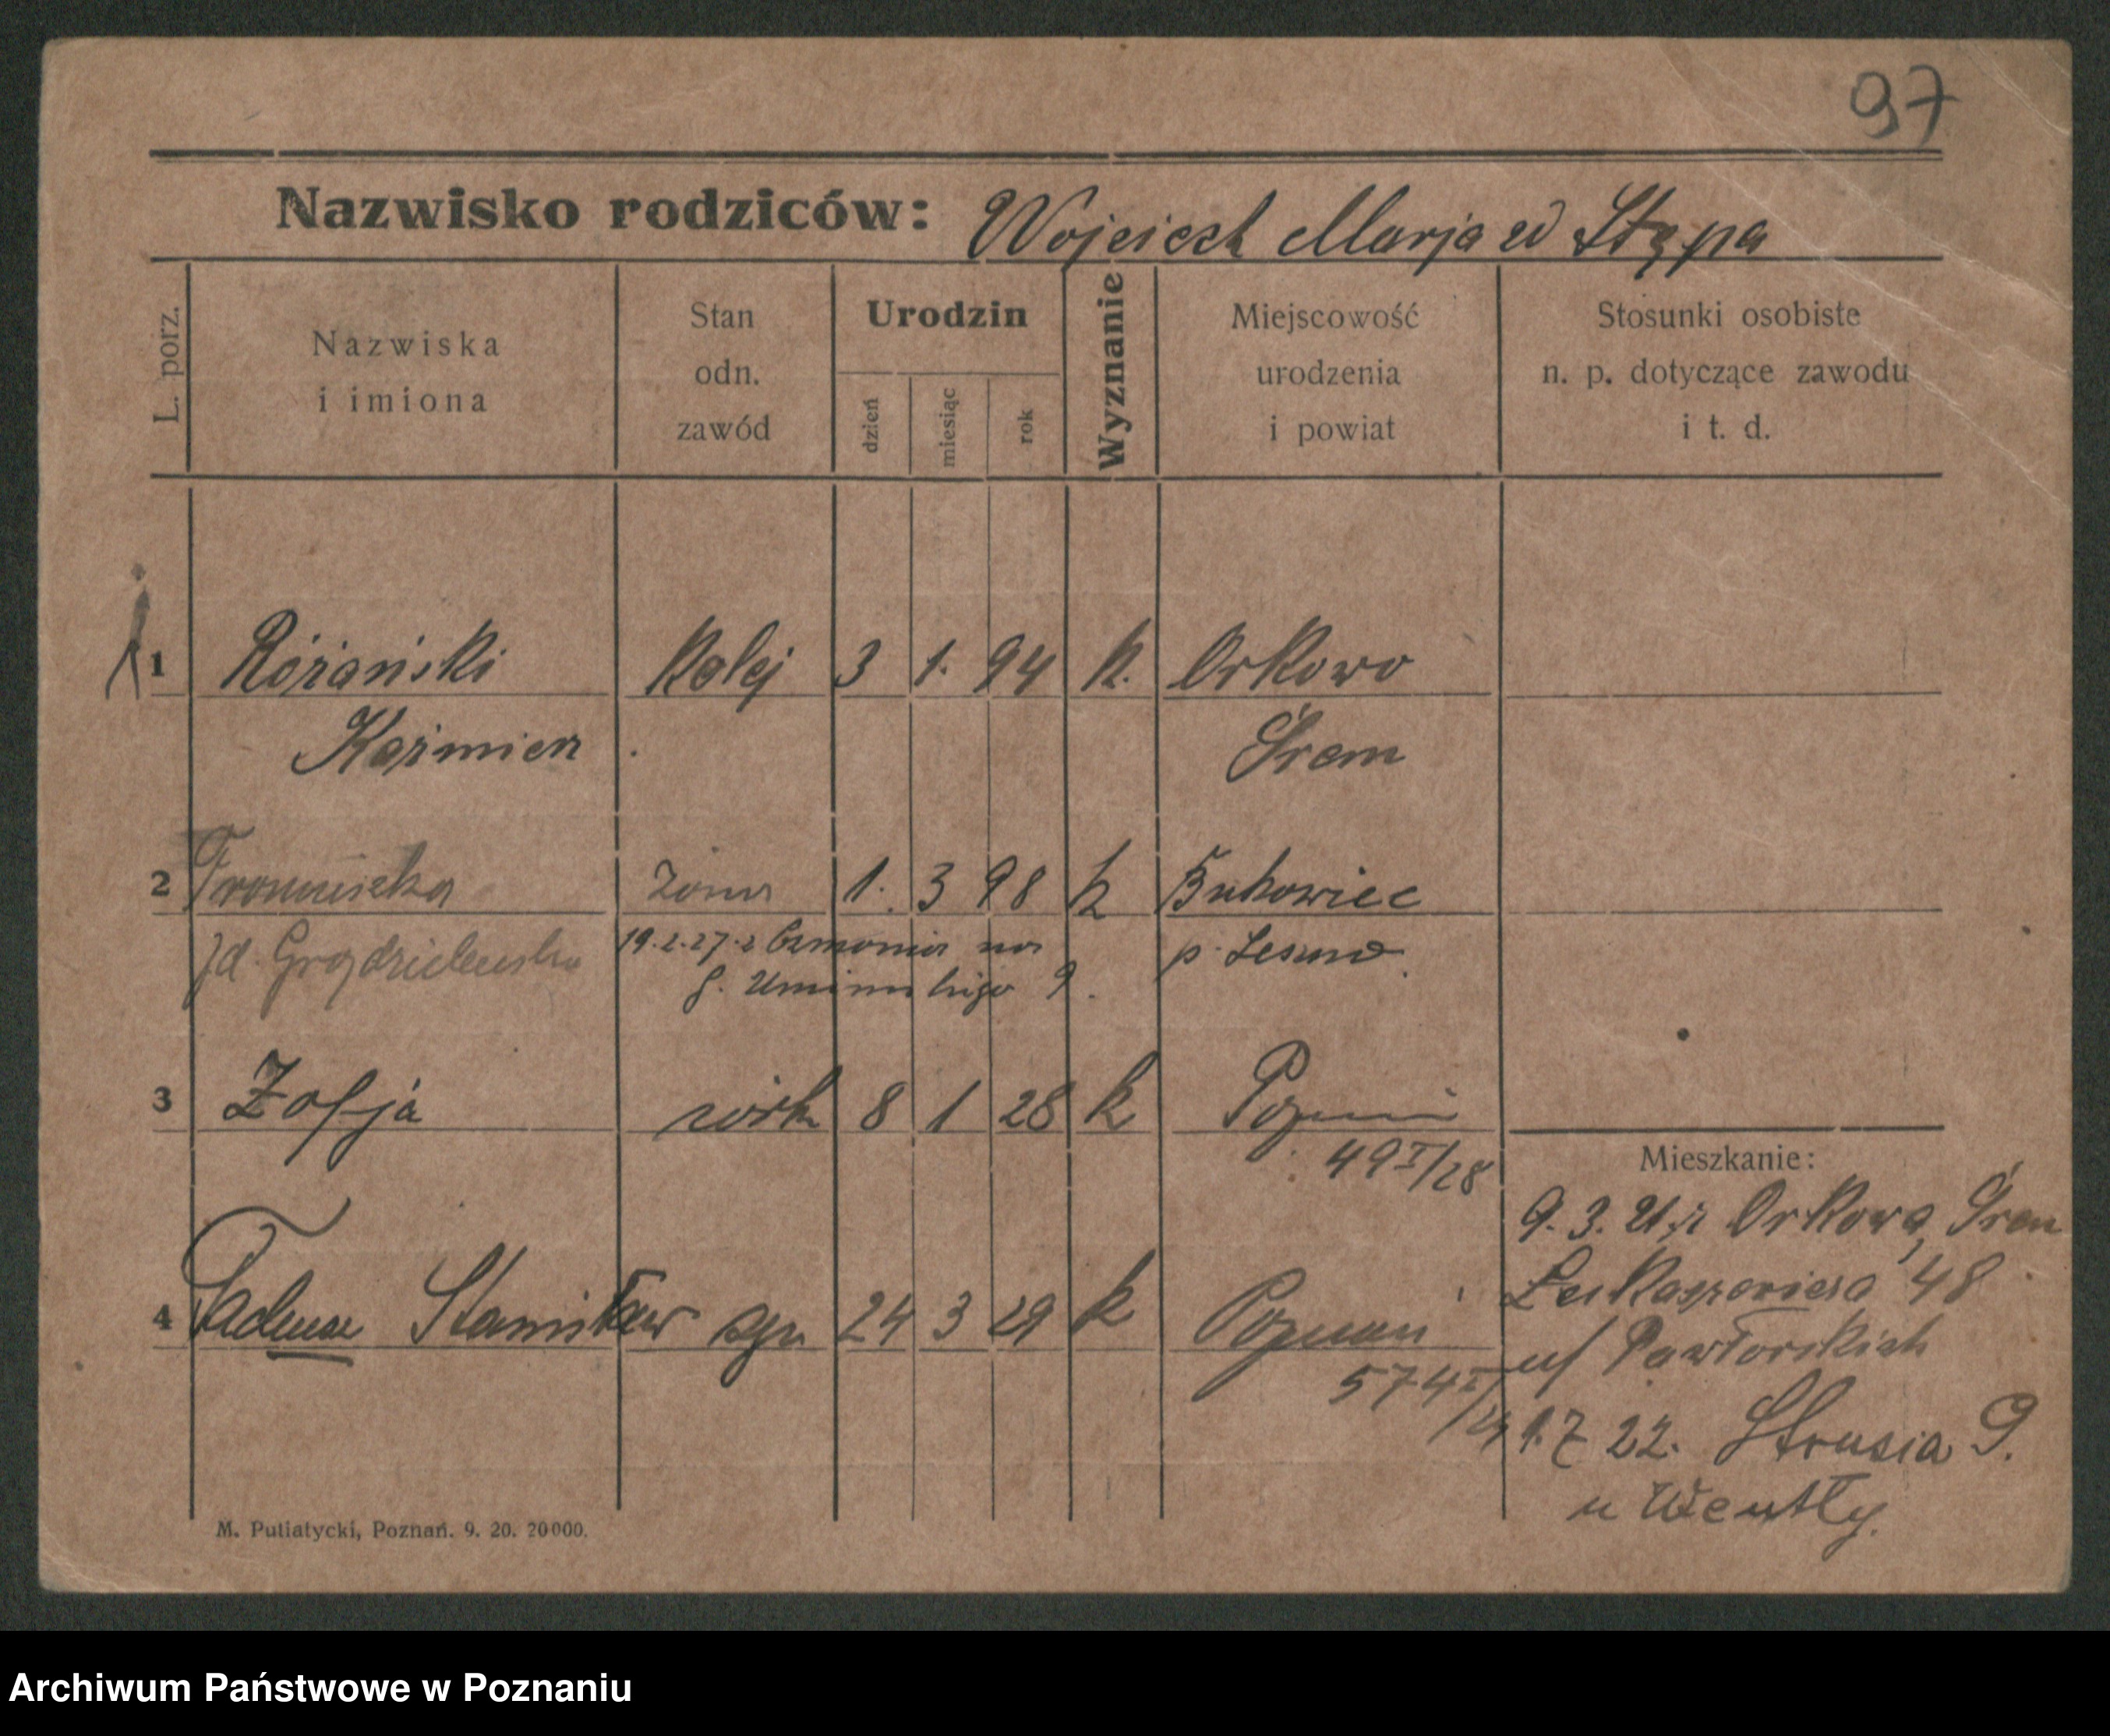 97
Nazwisko rodziców: Wojciech Marja zd Stępa
L. porz.
Nazwiska
i imiona
Stan
odn.
zawód
Urodzin
dzień
miesiąc
rok
Wyznanie
Miejscowość
urodzenia
i powiat
Stosunki osobiste
n. p. dotyczące zawodu
i t. d.
1 Różański Kolej 3 1. 94 k. Orkowo
Kaźmierz Śrem
2 Franciszka żona 1. 3 98 k Bukowiec
19.2.27. z na p. Leszno
9.
3 Zofja córk 8 1 28 k Poznań
49 I/28
4 Tadeusz Stanisław syn 24 3 29 k Poznań
574 I/29
Mieszkanie:
9. 3. 21 z Orkowa, Śrem
Łukaszewicza 48
u/ Pawłowskich
1.7 22. Strusia 9.
u Wentły.
M. Putiatycki, Poznań. 9. 20. 20000.
Archiwum Państwowe w Poznaniu